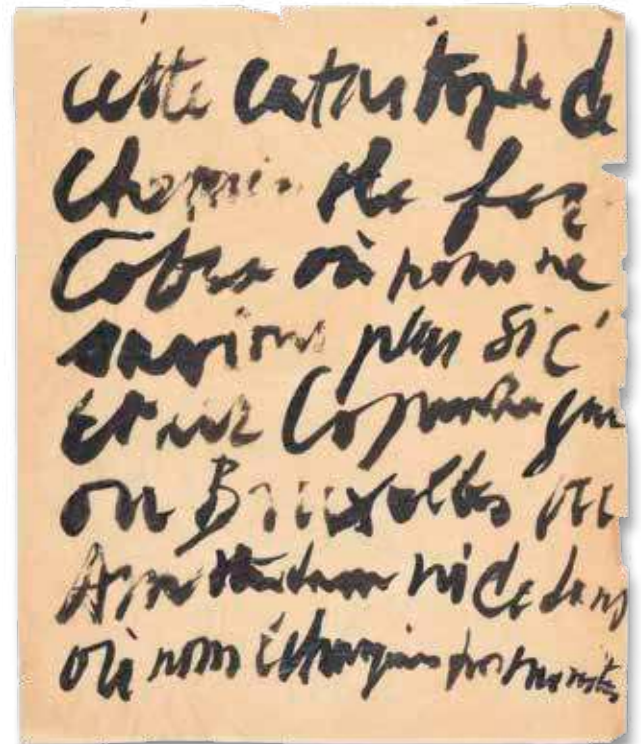 cette catastrophe de
chemin de fer
Cobra où nous ne
savions plus si c'
était Copenhague
ou Bruxelles ou
Amsterdam ni dans
où nous échangions nos